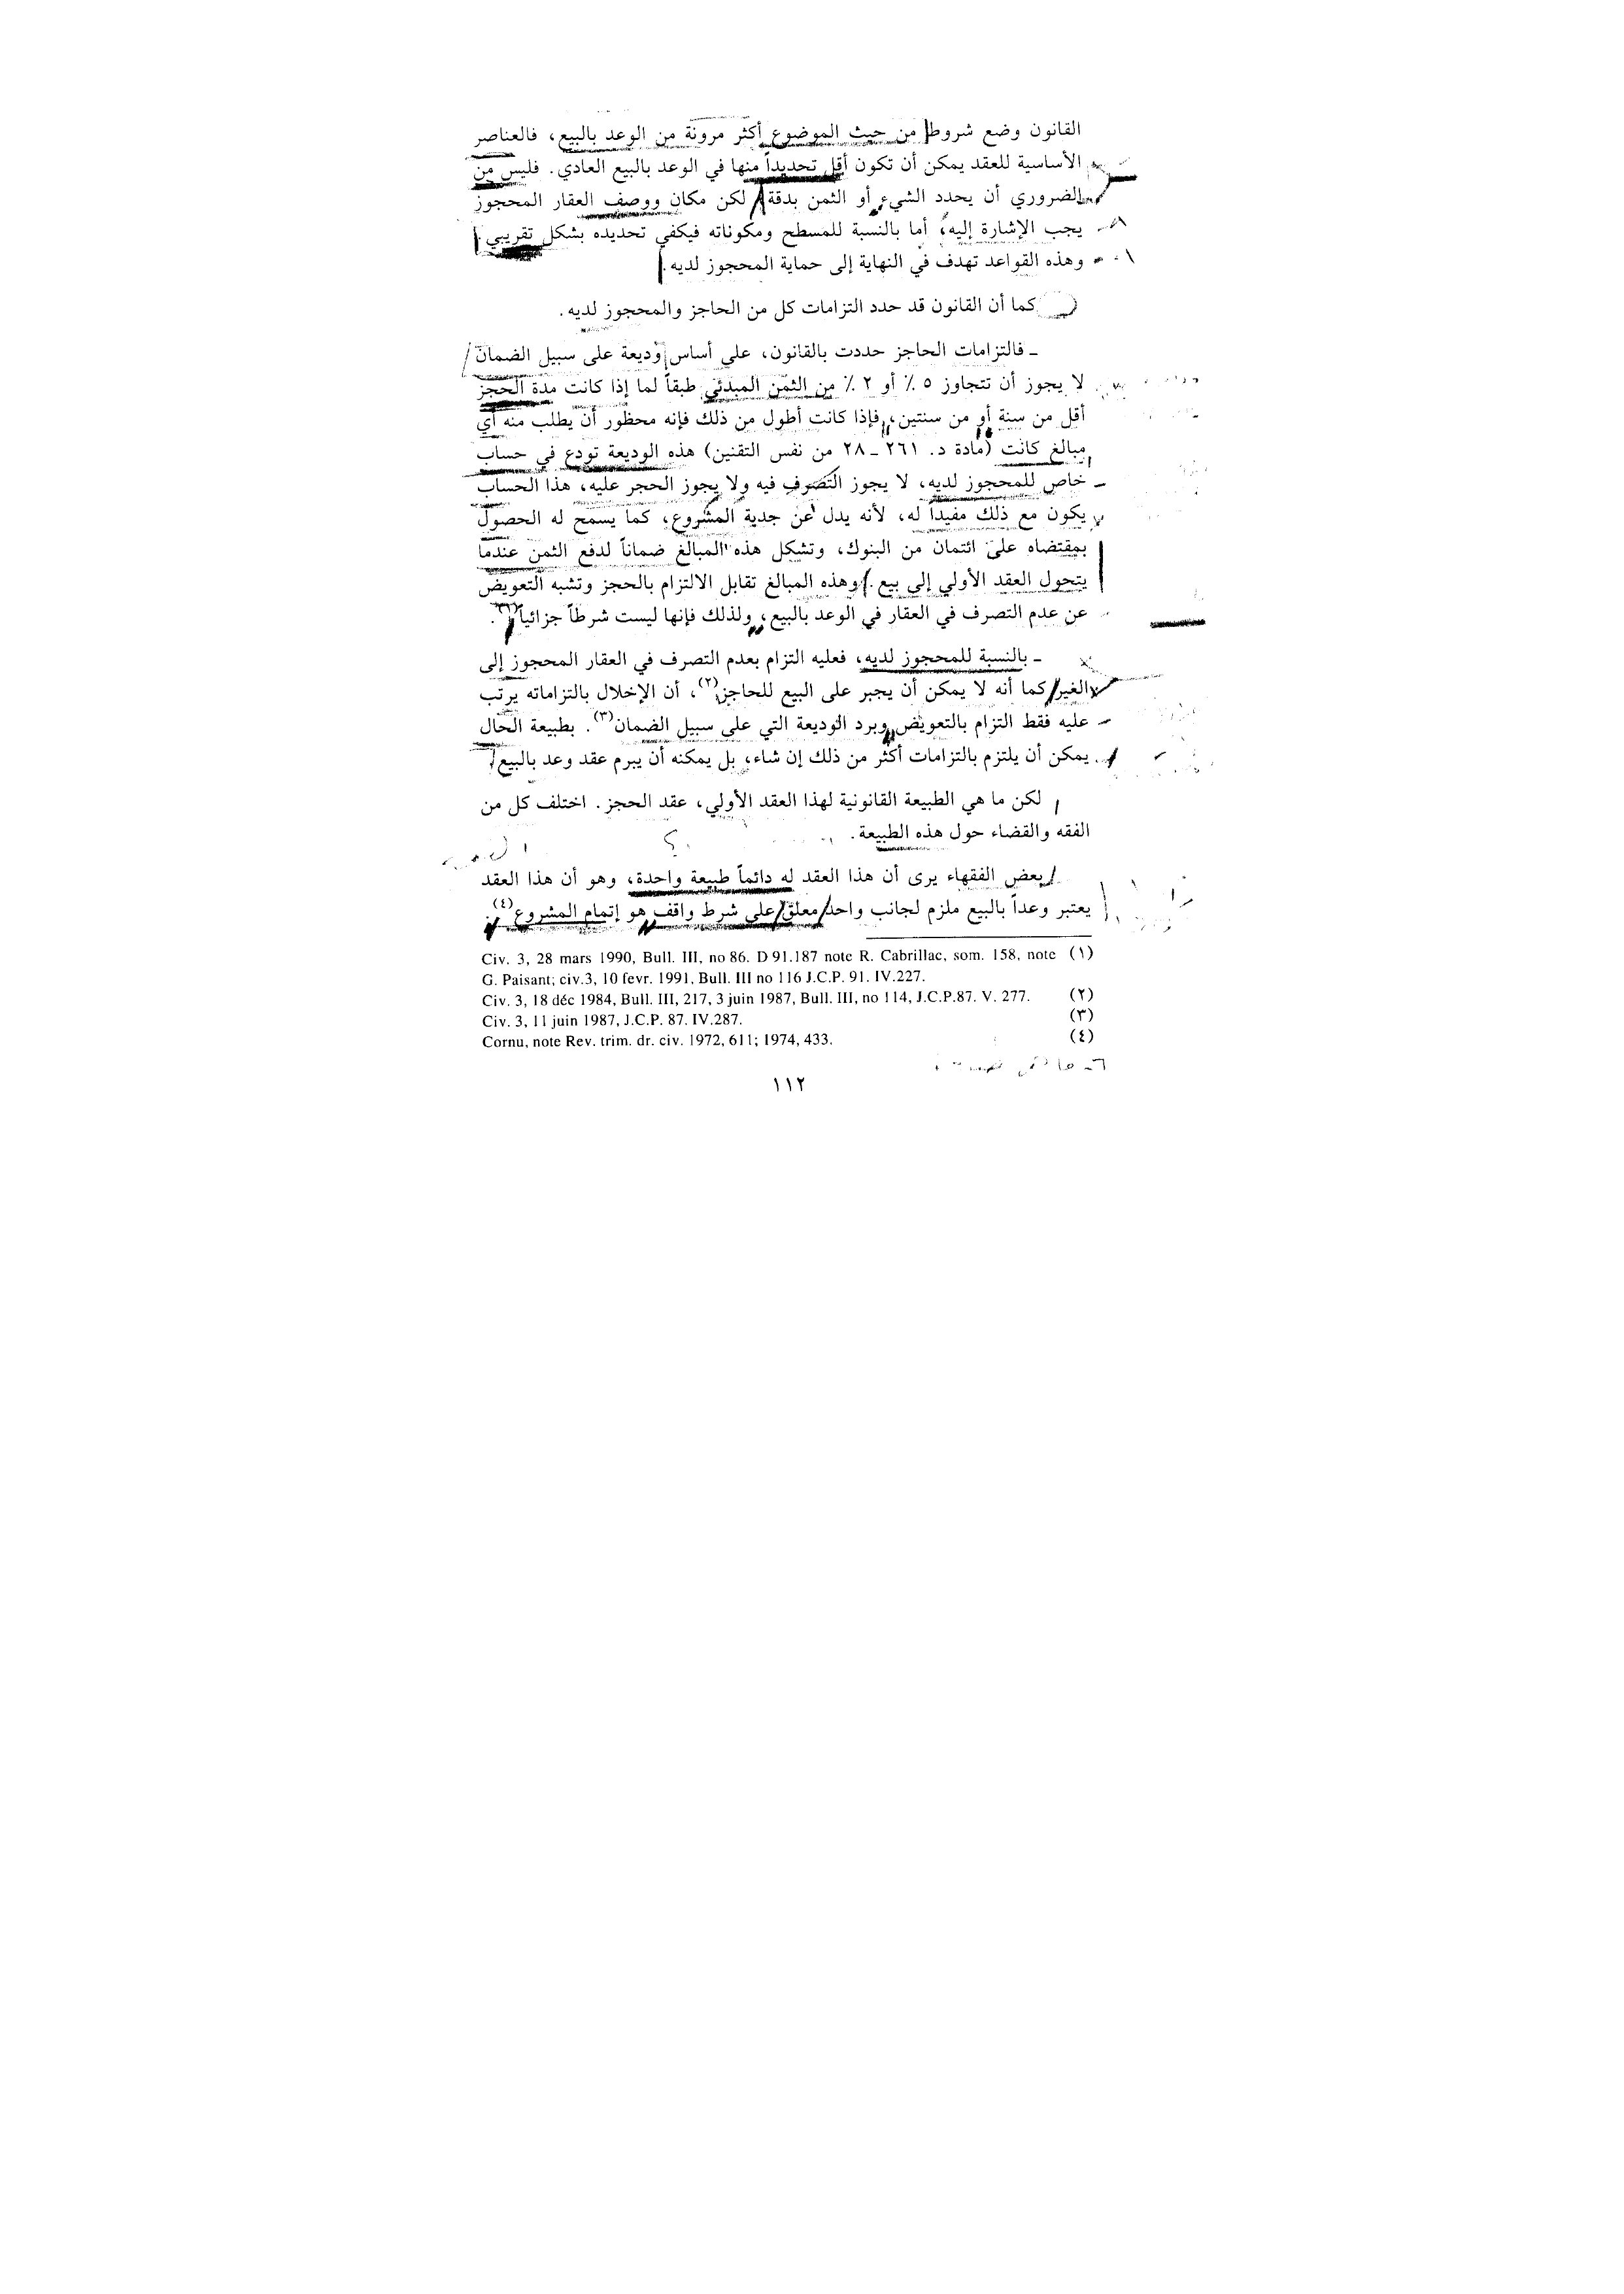 القانون وضع شروط من حيث الموضوع أكثر مرونة من الوعد بالبيع، فالعناصر
الأساسية للعقد يمكن أن تكون أقل تحديداً منها في الوعد بالبيع العادي. فليس من
الضروري أن يحدد الشيء أو الثمن بدقة لكن مكان ووصف العقار المحجوز
يجب الإشارة إليه، أما بالنسبة للمسطح ومكوناته فيكفي تحديده بشكل تقريبي.
وهذه القواعد تهدف في النهاية إلى حماية المحجوز لديه.
كما أن القانون قد حدد التزامات كل من الحاجز والمحجوز لديه.
ـ فالتزامات الحاجز حددت بالقانون، على أساس وديعة على سبيل الضمان
لا يجوز أن تتجاوز ٥ ٪ أو ٢ ٪ من الثمن المبدئي طبقاً لما إذا كانت مدة الحجز
أقل من سنة أو من سنتين، فإذا كانت أطول من ذلك فإنه محظور أن يطلب منه أي
مبالغ كانت (مادة د. ٢٦١ ـ ٢٨ من نفس التقنين) هذه الوديعة تودع في حساب
خاص للمحجوز لديه، لا يجوز التصرف فيه ولا يجوز الحجر عليه، هذا الحساب
يكون مع ذلك مفيداً له، لأنه يدل عن جدية المشروع، كما يسمح له الحصول
بمقتضاه على ائتمان من البنوك، وتشكل هذه المبالغ ضماناً لدفع الثمن عندما
يتحول العقد الأولي إلى بيع. وهذه المبالغ تقابل الالتزام بالحجز وتشبه التعويض
عن عدم التصرف في العقار في الوعد بالبيع، ولذلك فإنها ليست شرطاً جزائياً.
ـ بالنسبة للمحجوز لديه، فعليه التزام بعدم التصرف في العقار المحجوز إلى
الغير كما أنه لا يمكن أن يجبر على البيع للحاجز(٢)، أن الإخلال بالتزاماته يرتب
عليه فقط التزام بالتعويض وبرد الوديعة التي على سبيل الضمان(٣). بطبيعة الحال
يمكن أن يلتزم بالتزامات أكثر من ذلك إن شاء، بل يمكنه أن يبرم عقد وعد بالبيع
لكن ما هي الطبيعة القانونية لهذا العقد الأولي، عقد الحجز. اختلف كل من
الفقه والقضاء حول هذه الطبيعة.
بعض الفقهاء يرى أن هذا العقد له دائماً طبيعة واحدة، وهو أن هذا العقد
يعتبر وعداً بالبيع ملزم لجانب واحد معلق على شرط واقف هو إتمام المشروع(٤).
(١) Civ. 3, 28 mars 1990, Bull. III, no 86. D 91.187 note R. Cabrillac, som. 158, note
G. Paisant; civ.3, 10 fevr. 1991, Bull. III no 116 J.C.P. 91. IV.227.
(٢) Civ. 3, 18 déc 1984, Bull. III, 217, 3 juin 1987, Bull. III, no 114, J.C.P.87. V. 277.
(٣) Civ. 3, 11 juin 1987, J.C.P. 87. IV.287.
(٤) Cornu, note Rev. trim. dr. civ. 1972, 611; 1974, 433.
١١٢